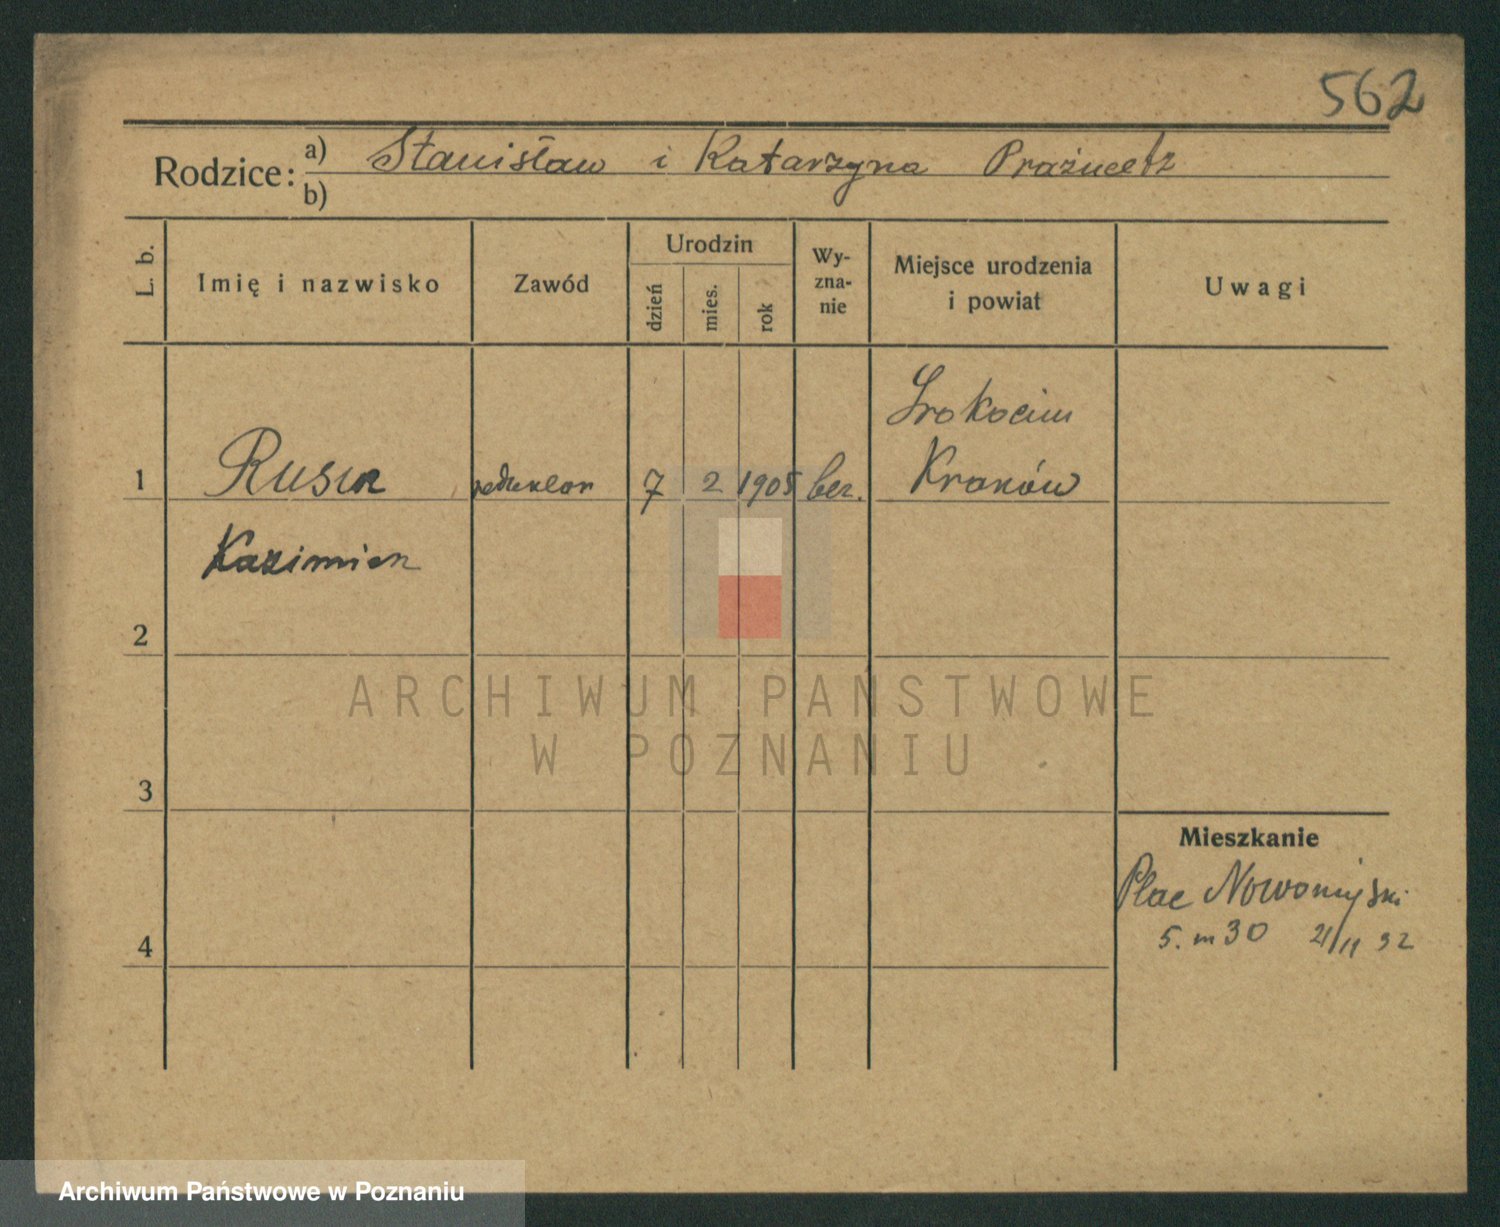 562
Rodzice: a) Stanisław i Katarzyna
b)
L. b.
Imię i nazwisko
Zawód
Urodzin
dzień
mies.
rok
Wy-
zna-
nie
Miejsce urodzenia
i powiat
Uwagi
1
Rusin
redaktor
7
2
1905
bez.
Prokocim
Kraków
Kazimierz
2
3
4
Mieszkanie
Plac Nowomiejski
5. m 30 21/11 32
ARCHIWUM PAŃSTWOWE
W POZNANIU
Archiwum Państwowe w Poznaniu